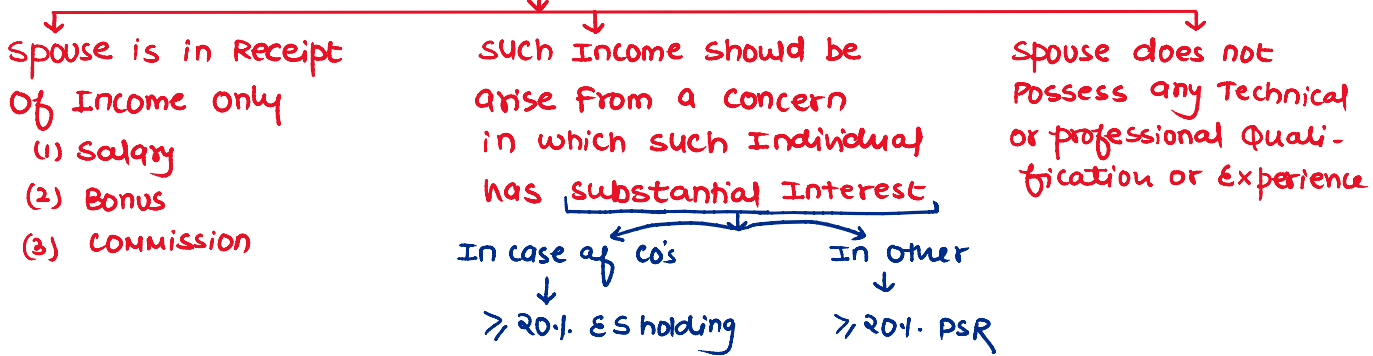 Spouse is in Receipt
Of Income only
(1) Salary
(2) Bonus
(3) Commission
Such Income should be
arise from a concern
in which such Individual
has substantial Interest
In case of co's
≥ 20%. ES holding
In other
≥ 20%. PSR
Spouse does not
Possess any Technical
or professional Quali-
fication or Experience